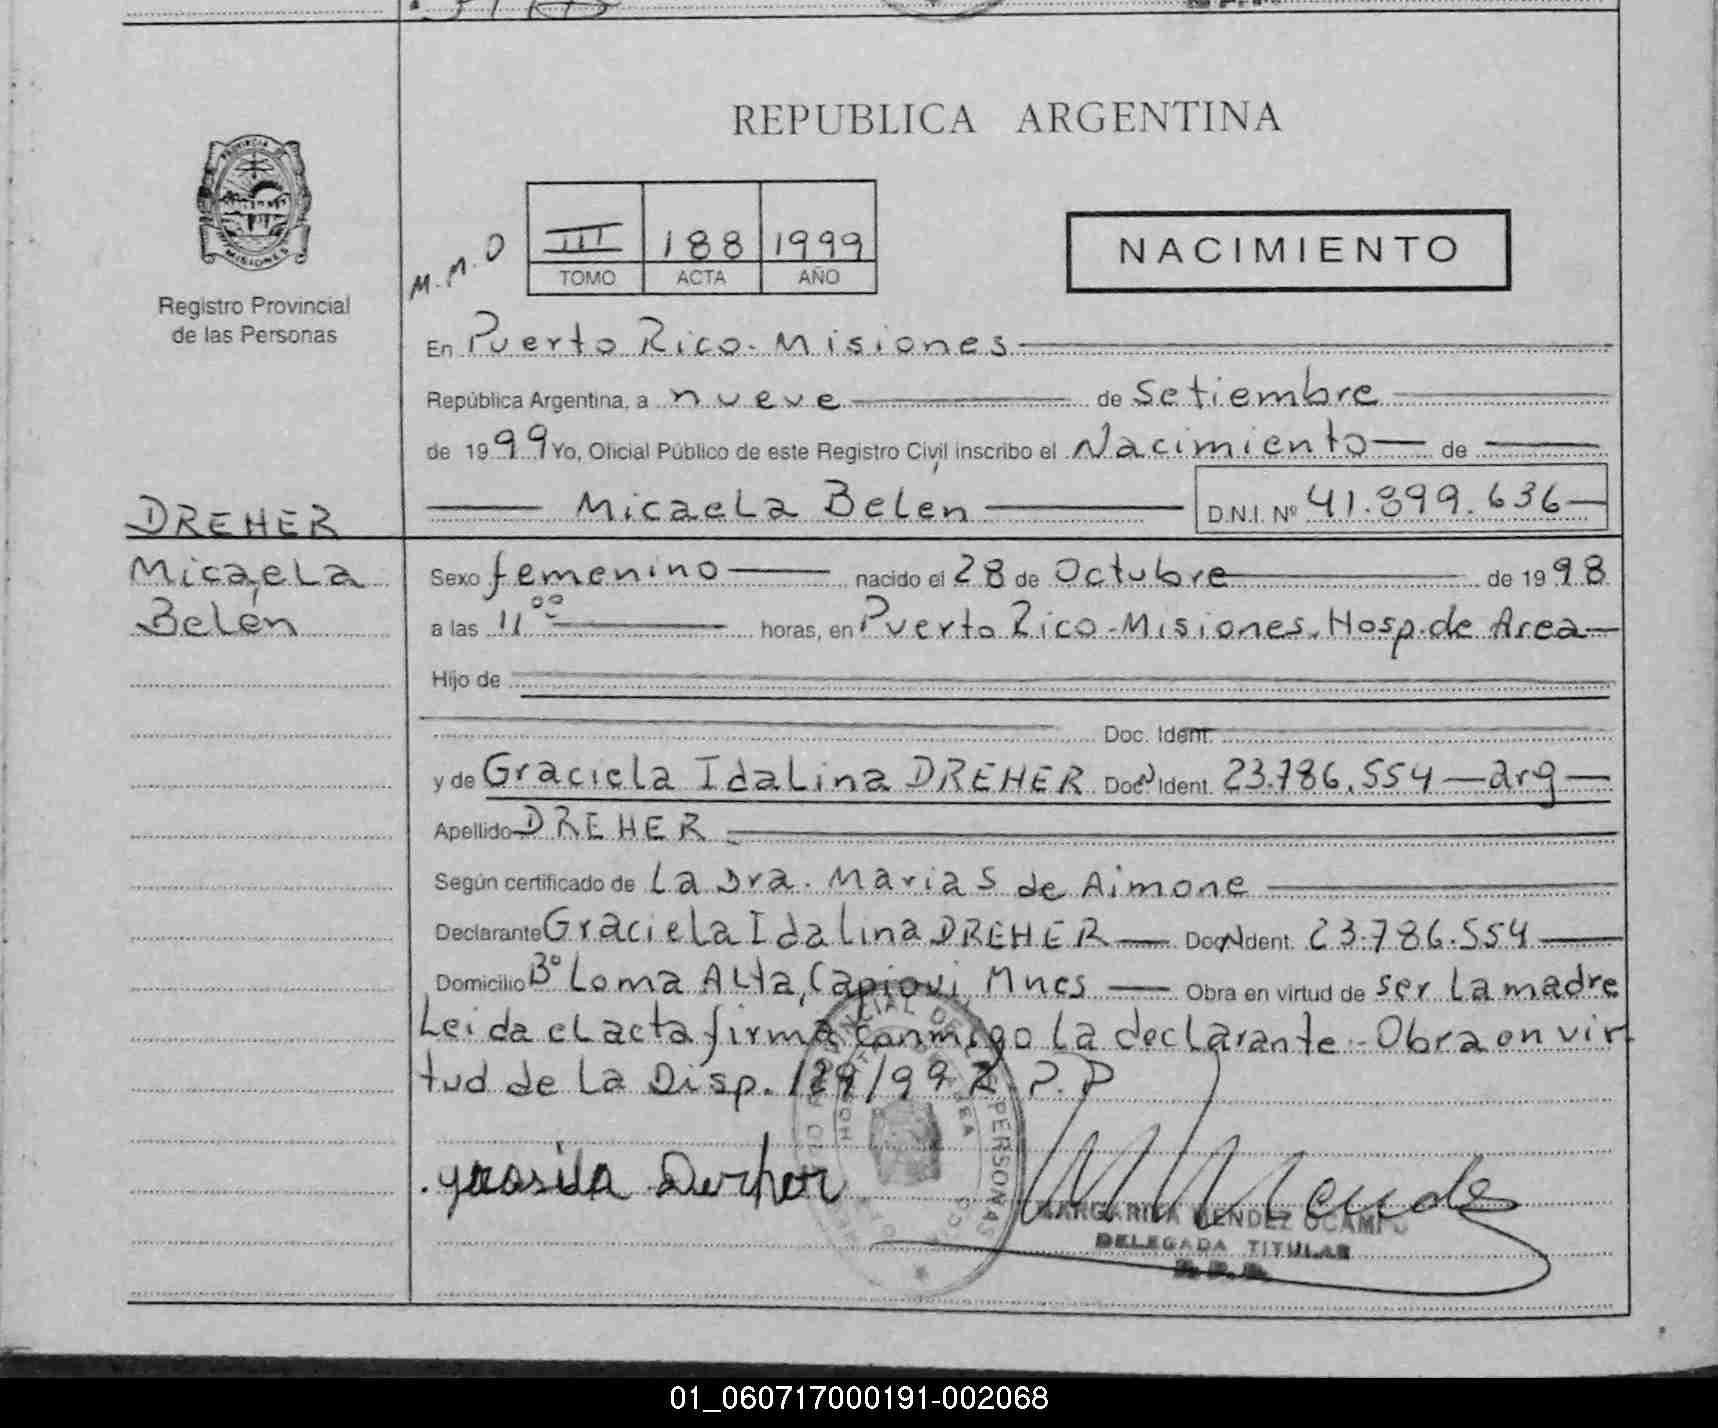 REPUBLICA ARGENTINA
PROVINCIA
MISIONES
Registro Provincial
de las Personas
M.M.O
III 188 1999
TOMO ACTA AÑO
NACIMIENTO
En Puerto Rico - Misiones
República Argentina, a nueve de Setiembre
de 1999 Yo, Oficial Público de este Registro Civil inscribo el Nacimiento de
Micaela Belén D.N.I. Nº 41.899.636
DREHER
Micaela
Belén
Sexo femenino nacido el 28 de Octubre de 1998
a las 11⁰⁰ horas, en Puerto Rico - Misiones, Hosp. de Area
Hijo de
Doc. Ident.
y de Graciela Idalina DREHER Doc. Ident. 23.786.554 - arg
Apellido DREHER
Según certificado de La Dra. Maria S de Aimone
Declarante Graciela Idalina DREHER Doc. Ident. 23.786.554
Domicilio Bº Loma Alta, Capiovi, Mnes Obra en virtud de ser la madre
Leida el acta firma conmigo la declarante - Obra en vir
tud de la Disp. 129/99 R.P.P
MARGARITA MENDEZ OCAMPO
DELEGADA TITULAR
01_060717000191-002068